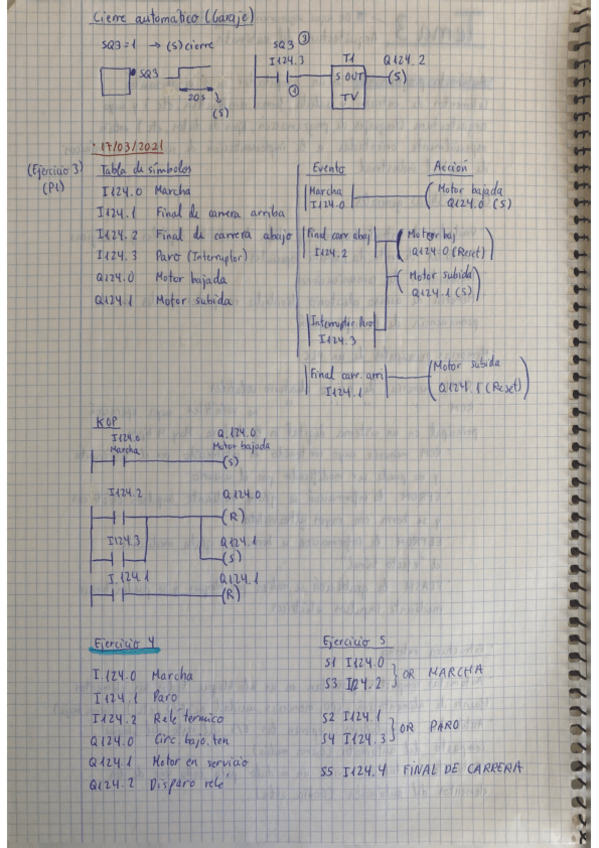 Cierre automático (Garaje)
SQ3=1 → (S) cierre
SQ3
20s
(S)
SQ3 ③
I124.3
①
T1
S OUT
TV
Q124.2
(S)
17/03/2021
(Ejercicio 3)
(P1)
Tabla de símbolos
I124.0 Marcha
I124.1 Final de carrera arriba
I124.2 Final de carrera abajo
I124.3 Paro (Interruptor)
Q124.0 Motor bajada
Q124.1 Motor subida
Evento Acción
Marcha Motor bajada
I124.0 Q124.0 (S)
Final carr. abaj Motor baj
I124.2 Q124.0 (Reset)
Motor subida
Q124.1 (S)
Interruptor Paro
I124.3
Final carr. arri Motor subida
I124.1 Q124.1 (Reset)
KOP
I124.0 Q.124.0
Marcha Motor bajada
(S)
I124.2 Q124.0
(R)
I124.3 Q124.1
(S)
I.124.1 Q124.1
(R)
Ejercicio 4
I.124.0 Marcha
I124.1 Paro
I124.2 Relé térmico
Q124.0 Circ. bajo. ten
Q124.1 Motor en servicio
Q124.2 Disparo relé
Ejercicio 5
S1 I124.0
S3 I124.2
OR MARCHA
S2 I124.1
S4 I124.3
OR PARO
S5 I124.4 FINAL DE CARRERA